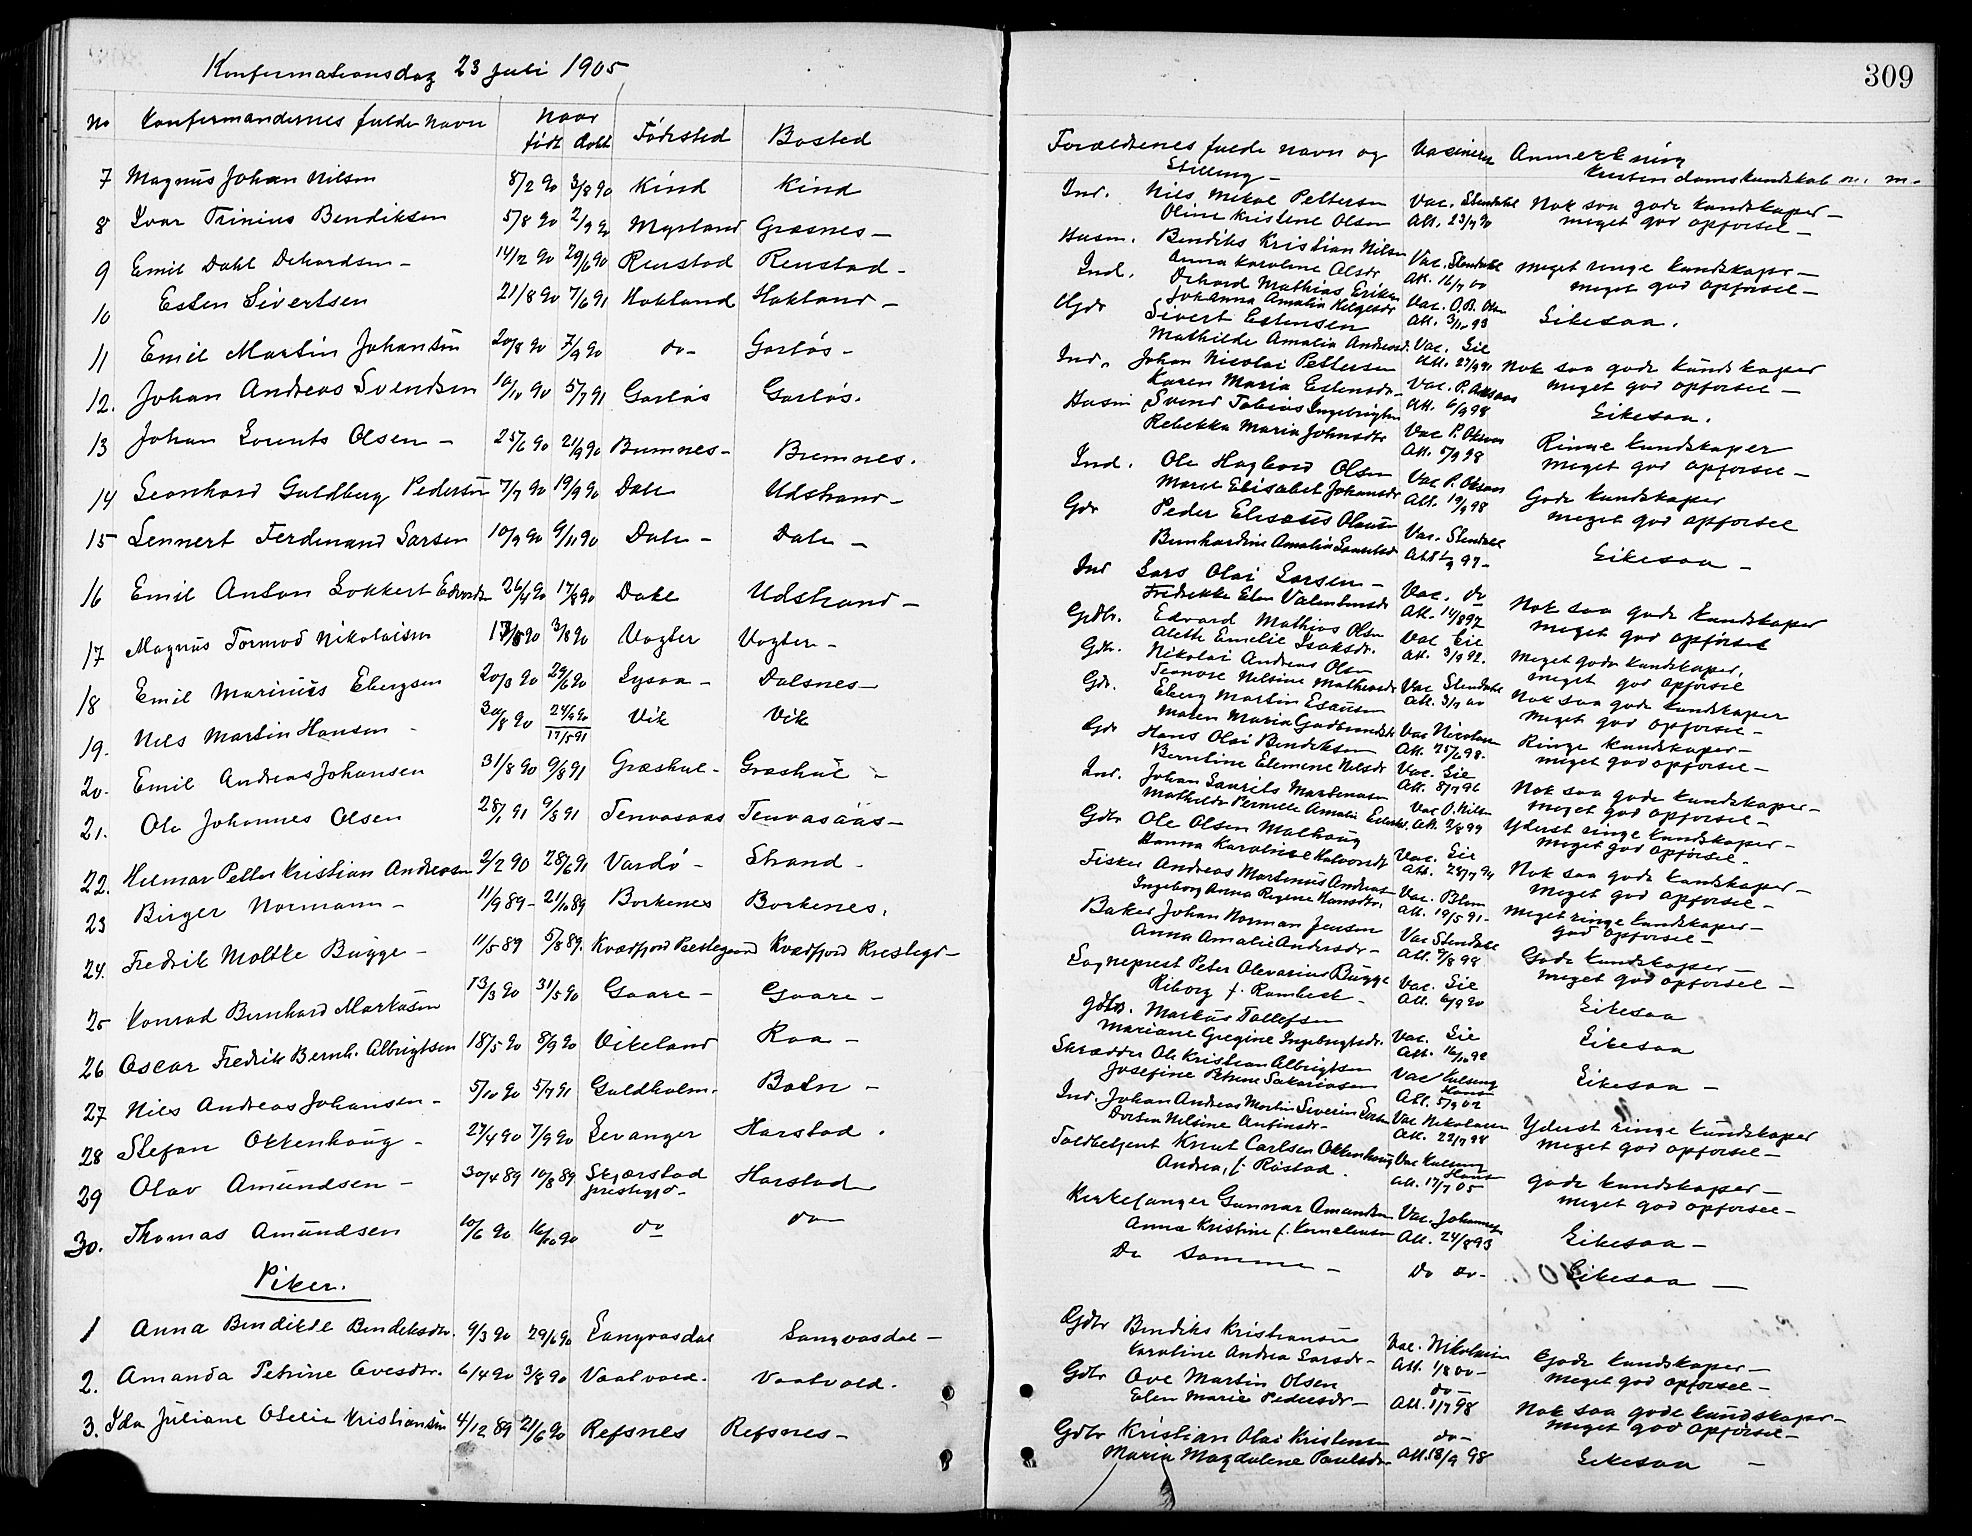 309
Konfirmationsdag 23 juli 1905
No Konfirmandernes fulde navn Naar født døbt Fødested Bosted
7 Magnus Johan Nilsen 8/2 90 3/8 90 Kind Kind
8 Ivar Trinius Bendiksen 5/8 90 2/9 90 Myrland Grøsnes –
9 Emil Dahl Dehardsen – 14/2 90 29/6 90 Renstad Renstad –
10 Esten Sivertsen 21/8 90 7/6 91 Hokland Hokland –
11 Emil Martin Johansen 20/8 90 7/9 90 do – Gortøs –
12. Johan Andreas Svendsen 10/10 90 5/7 91 Gortøs Gortøs.
13 Johan Lorents Olsen – 25/6 90 21/9 90 Bremnes – Bremnes.
14 Leonhard Guldberg Pedersen 7/7 90 19/9 90 Dale Udstrand –
15 Lennert Ferdinand Larsen 10/9 90 9/11 90 Dale – Dale –
16 Emil Anton Lokkert Edvardsen 26/4 90 17/8 90 Dale Udstrand –
17 Magnus Tormod Nikolaisen 3/8 90 Vogter Vogter –
18 Emil Marinius Ebergsen 20/3 90 29/6 90 Lysaa – Dalsnes –
19. Nils Martin Hansen – 30/8 90 24/9 90 17/5 91 Vik Vik
20. Emil Andreas Johansen 31/8 90 9/8 91 Græshul – Græshul –
21. Ole Johannes Olsen 28/1 91 9/8 91 Tenvasaas Tenvasaas –
22. Hilmar Petter Kristian Andreassen 2/2 90 28/6 91 Vardø – Strand –
23 Birger Normann – 11/9 89 – 21/10 89 Borkenes Borkenes.
24. Fredrik Moltke Bugge – 11/5 89 5/8 89. Kvædfjord Prestegaard Kvædfjord Prestegd –
25 Konrad Bernhard Markusen 13/3 90 31/5 90 Gaare – Gaare –
26 Oscar Fredrik Bernh. Albrigtsen 18/5 90 8/9 90 Vikeland Raa –
27 Nils Andreas Johansen – 5/10 90 5/7 91 Guldholm. Botn –
28 Stefan Okkenhaug – 27/4 90 7/9 90 Levanger Harstad.
29 Olav Amundsen – 30/4 89 10/8 89 Skjærstad prestegd – Harstad
30. Thomas Amundsen 10/6 90 16/10 90 do do –
Piker.
1 Anna Bendikte Bendiksdtr. 9/3 90 29/6 90 Langvasdal Langvasdal –
2. Amanda Petrine Ovesdtr. 6/4 90 3/8 90 Vaatvold. Vaatvold.
3. Ida Juliane Otelie Kristiansen 4/12 89 21/6 90 Refsnes Refsnes –
Forældrenes fulde navn og Stilling – Vacinering Anmerkning Kristendomskundskab m. m.
Ind. Nils Mikal Pettersen Vac. Stendahl Nok saa gode kundskaper –
Oline Kristine Olsen Att. 23/9 90 meget god opførsel –
Husm. Bendiks Kristian Nilsen Vac. Stendahl meget ringe kundskaper –
Anna Karoline Olsdr Att. 16/7 00 meget god opførsel –
Ind. Dehard Mathias Eriksen Vac. O. B. Olsen
Johanna Amalia Helgesdr Att. 3/11 93 Likesaa.
Gdr Sivert Estensen Vac. Lie
Mathilde Amalia Andreasd. Att. 27/9 91 Nok saa gode kundskaper
Ind. Johan Nicolai Pettersen meget god opførsel –
Karen Maria Estensdr. Att. 6/9 98 Likesaa.
Husm Svend Tobias Ingebrigtsen Vac P. Oksaas Ringe kundskaper
Rebekka Maria Johnsdtr Att. 5/9 98 meget god opførsel –
Ind. Ole Hagbard Olsen Vac P. Oksaas Gode kundskaper
Maret Elisabet Johansdr Att. 19/9 98 meget god opførsel
Gdr Peder Elisæus Olausen Vac. Stendahl
Bernhardine Amalia Likesaa –
Ind Lars Olai Larsen – Vac. do Nok saa gode kundskaper
Fredrikke Elen Valentinsdr Att. 14/8 97 meget god opførsel
Gdbr. Edvard Mathias Olsen Vac Lie meget gode kundskaper,
Aleth Emelie Isaksdr. Att. 3/9 92. meget god opførsel
Gdr. Nikolai Andreas Olsen Vac Stendahl Nok saa gode kundskaper
Leonore Nelsine Mathiasdr Att. 3/7 00 meget god opførsel –
Gdr. Eberg Martin Esausen Vac Nicolaisen Ringe kundskaper –
Maren Maria Gudbrandsdr Att. 25/6 98. meget god opførsel –
Gdr Hans Olai Bendiksen Vac. Lie Nok saa gode kundskaper –
Berntine Elemene Nilsdr Att. 8/7 96 meget god opførsel –
Ind. Johan Laurits Martinusen Vac O. Nilsen Yderst ringe kundskaper –
Mathilde Pernille Amalia Att. 2/8 99 meget god opførsel –
Gdbr Ole Olsen Melhaug Vac. Lie Nok saa gode kundskaper –
Hanna Karoline Halvorsdr Att. 28/7 94 meget god opførsel –
Fisker Andreas Martinus Andreas Vac. Blom meget ringe kundskaper –
Ingeborg Anna Regine Hansdtr. Att. 19/5 91 – god opførsel –
Baker Johan Norman Jensen Vac Stendahl Gode kundskaper –
Anna Amalie Andersdr – Att. 9/8 98 meget god opførsel –
Sogneprest Peter Olevarius Bugge Vac. Lie
Riborg f. Rambeck – Att. 6/9 90 Likesaa
Gdbr. Markus Tollefsen Vac. Lie
Mariane Gregine Ingebrigtsdr. Att. 16/10 92 Likesaa
Skrædder Ole Kristian Albrigtsen Vac Kulseng Hans
Josefine Petrine Sakariasen Att. 5/9 02 Likesaa –
Ind. Johan Andreas Martin Severin Vac Nikolaisen Yderst ringe kundskaper
Dortea Nilsine Anfinsdr – Att. 22/7 98 meget god opførsel –
Toldbetjent Knut Carlsen Okkenhaug Vac Kulseng Hans gode kundskaper –
Andrea, f. Røstad. Att. 17/7 05 meget god opførsel –
Kirkesanger Gunnar Amundsen Vac. Johannes
Anna Kristine f. Kornelius Att. 24/8 93 Likesaa –
De samme – do do – Likesaa –
Gdbr Bendiks Kristiansen Vac. Nikolaisen Gode kundskaper –
Karoline Andrea Larsdr – Att. 1/8 00 – meget god opførsel –
Gdbr Ove Martin Olsen do – Nok saa gode kundskaper –
Elen Marie Pedersdr – Att. 1/7 98 meget god opførsel –
Gdbr Kristian Olai Kristensen do –
Maria Magdalene Paulsdr – Att. 18/9 98 Likesaa –